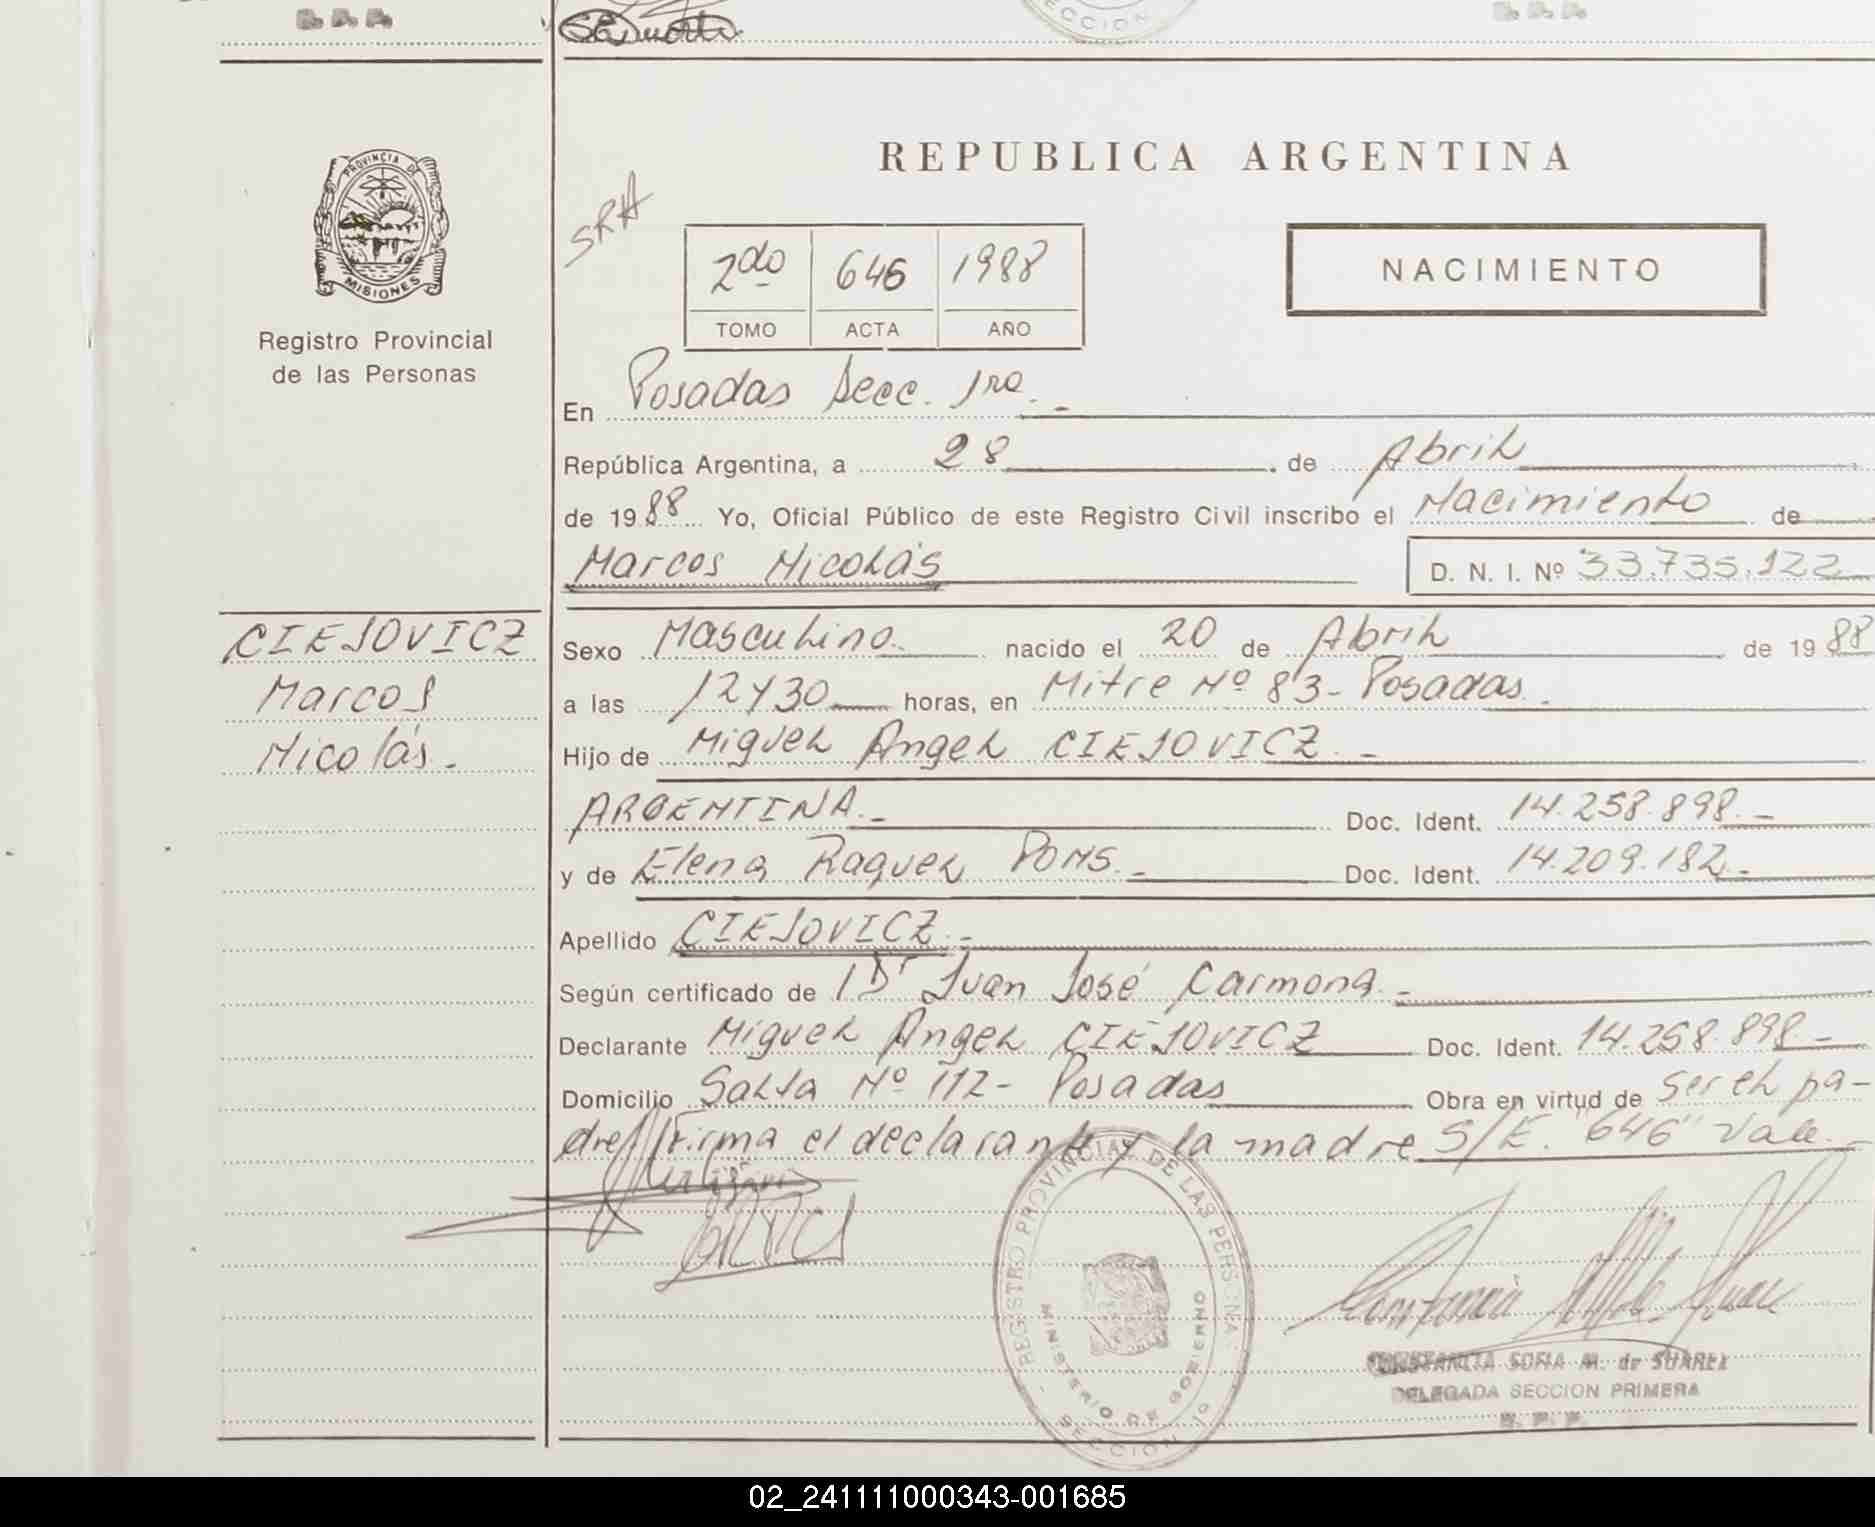 R.P.P.
R.P.P.
SECCION
REPUBLICA ARGENTINA
PROVINCIA DE
MISIONES
Registro Provincial
de las Personas
SRA
2do 646 1988
TOMO ACTA AÑO
NACIMIENTO
En Posadas Secc. 1ra.-
República Argentina, a 28 de Abril
de 1988 Yo, Oficial Público de este Registro Civil inscribo el Nacimiento de
Marcos Nicolás D. N. I. Nº 33.735.122
CIEJOVICZ
Marcos
Nicolás.
Sexo Masculino. nacido el 20 de Abril de 1988
a las 12y30 horas, en Mitre Nº 83- Posadas.
Hijo de Miguel Angel CIEJOVICZ.-
ARGENTINA.- Doc. Ident. 14.258.898.-
y de Elena Raquel PONS.- Doc. Ident. 14.209.182.-
Apellido CIEJOVICZ.-
Según certificado de Dr Juan José Carmona.-
Declarante Miguel Angel CIEJOVICZ Doc. Ident. 14.258.898.-
Domicilio Salta Nº 112- Posadas Obra en virtud de ser el pa-
dre// Firma el declarante y la madre S/E. "646" Vale.-
REGISTRO PROVINCIAL DE LAS PERSONAS
MINISTERIO DE GOBIERNO
SECCION 1º
CONSTANCIA SOFIA M. de SUAREZ
DELEGADA SECCION PRIMERA
R. P. P.
02_241111000343-001685